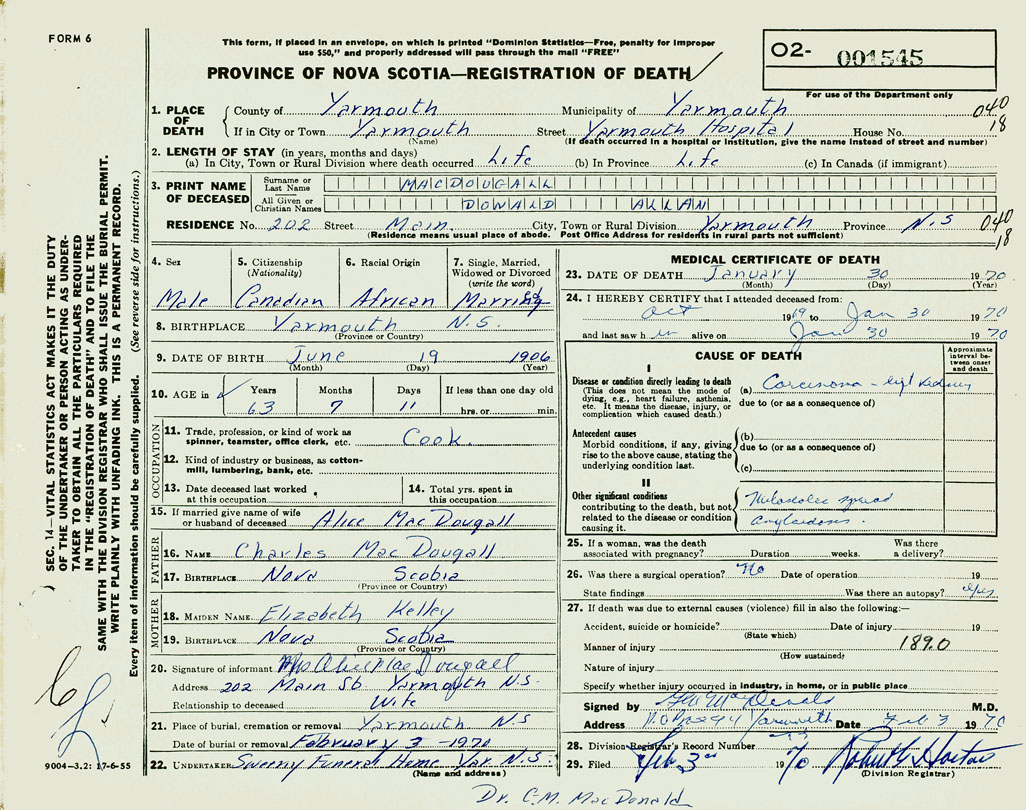 FORM 6
This form, if placed in an envelope, on which is printed "Dominion Statistics—Free, penalty for improper
use $50," and properly addressed will pass through the mail "FREE"
PROVINCE OF NOVA SCOTIA—REGISTRATION OF DEATH
O2- 001545
For use of the Department only
1. PLACE OF DEATH County of Yarmouth Municipality of Yarmouth 040
If in City or Town Yarmouth Street Yarmouth Hospital House No. 18
(Name) (If death occurred in a hospital or institution, give the name instead of street and number)
2. LENGTH OF STAY (in years, months and days)
(a) In City, Town or Rural Division where death occurred Life (b) In Province Life (c) In Canada (if immigrant)
3. PRINT NAME OF DECEASED Surname or Last Name MACDOUGALL
All Given or Christian Names DOWALD ALLAN
RESIDENCE No. 202 Street Main City, Town or Rural Division Yarmouth Province N.S 040
(Residence means usual place of abode. Post Office Address for residents in rural parts not sufficient) 18
4. Sex 5. Citizenship (Nationality) 6. Racial Origin 7. Single, Married, Widowed or Divorced (write the word)
Male Canadian African Married
8. BIRTHPLACE Yarmouth N.S.
(Province or Country)
9. DATE OF BIRTH June 19 1906
(Month) (Day) (Year)
10. AGE in Years Months Days If less than one day old
63 7 11 hrs. or min.
OCCUPATION
11. Trade, profession, or kind of work as spinner, teamster, office clerk, etc. Cook.
12. Kind of industry or business, as cotton-mill, lumbering, bank, etc.
13. Date deceased last worked at this occupation 14. Total yrs. spent in this occupation
15. If married give name of wife or husband of deceased Alice MacDougall
FATHER
16. NAME Charles MacDougall
17. BIRTHPLACE Nova Scobia
(Province or Country)
MOTHER
18. MAIDEN NAME Elizabeth Kelley
19. BIRTHPLACE Nova Scobia
(Province or Country)
20. Signature of informant Mrs Alice MacDougall
Address 202 Main St. Yarmouth N.S.
Relationship to deceased Wife
21. Place of burial, cremation or removal Yarmouth N.S
Date of burial or removal February 3 - 1970
22. UNDERTAKER Sweeny Funeral Home Yar. N.S.
(Name and address)
MEDICAL CERTIFICATE OF DEATH
23. DATE OF DEATH January 30 1970
(Month) (Day) (Year)
24. I HEREBY CERTIFY that I attended deceased from:
Oct 1969 to Jan 30 1970
and last saw h im alive on Jan 30 1970
CAUSE OF DEATH
Approximate interval between onset and death
I
Disease or condition directly leading to death
(This does not mean the mode of dying, e.g., heart failure, asthenia, etc. It means the disease, injury, or complication which caused death.)
(a) Carcinoma - left Kidney
due to (or as a consequence of)
Antecedent causes
Morbid conditions, if any, giving rise to the above cause, stating the underlying condition last.
(b)
due to (or as a consequence of)
(c)
II
Other significant conditions contributing to the death, but not related to the disease or condition causing it.
spread
25. If a woman, was the death associated with pregnancy? Duration weeks. Was there a delivery?
26. Was there a surgical operation? No Date of operation 19
State findings Was there an autopsy? Yes
27. If death was due to external causes (violence) fill in also the following:—
Accident, suicide or homicide? Date of injury 19
(State which)
Manner of injury 189.0
(How sustained?)
Nature of injury
Specify whether injury occurred in industry, in home, or in public place
Signed by M.D.
Address Yarmouth Date Feb 3 1970
28. Division Registrar's Record Number
29. Filed Feb. 3rd 1970
(Division Registrar)
Dr. C. M. MacDonald
SEC. 14—VITAL STATISTICS ACT MAKES IT THE DUTY
OF THE UNDERTAKER OR PERSON ACTING AS UNDER-
TAKER TO OBTAIN ALL THE PARTICULARS REQUIRED
IN THE "REGISTRATION OF DEATH" AND TO FILE THE
SAME WITH THE DIVISION REGISTRAR WHO SHALL ISSUE THE BURIAL PERMIT.
WRITE PLAINLY WITH UNFADING INK. THIS IS A PERMANENT RECORD.
Every item of information should be carefully supplied. (See reverse side for instructions.)
9004-3.2: 17-6-55